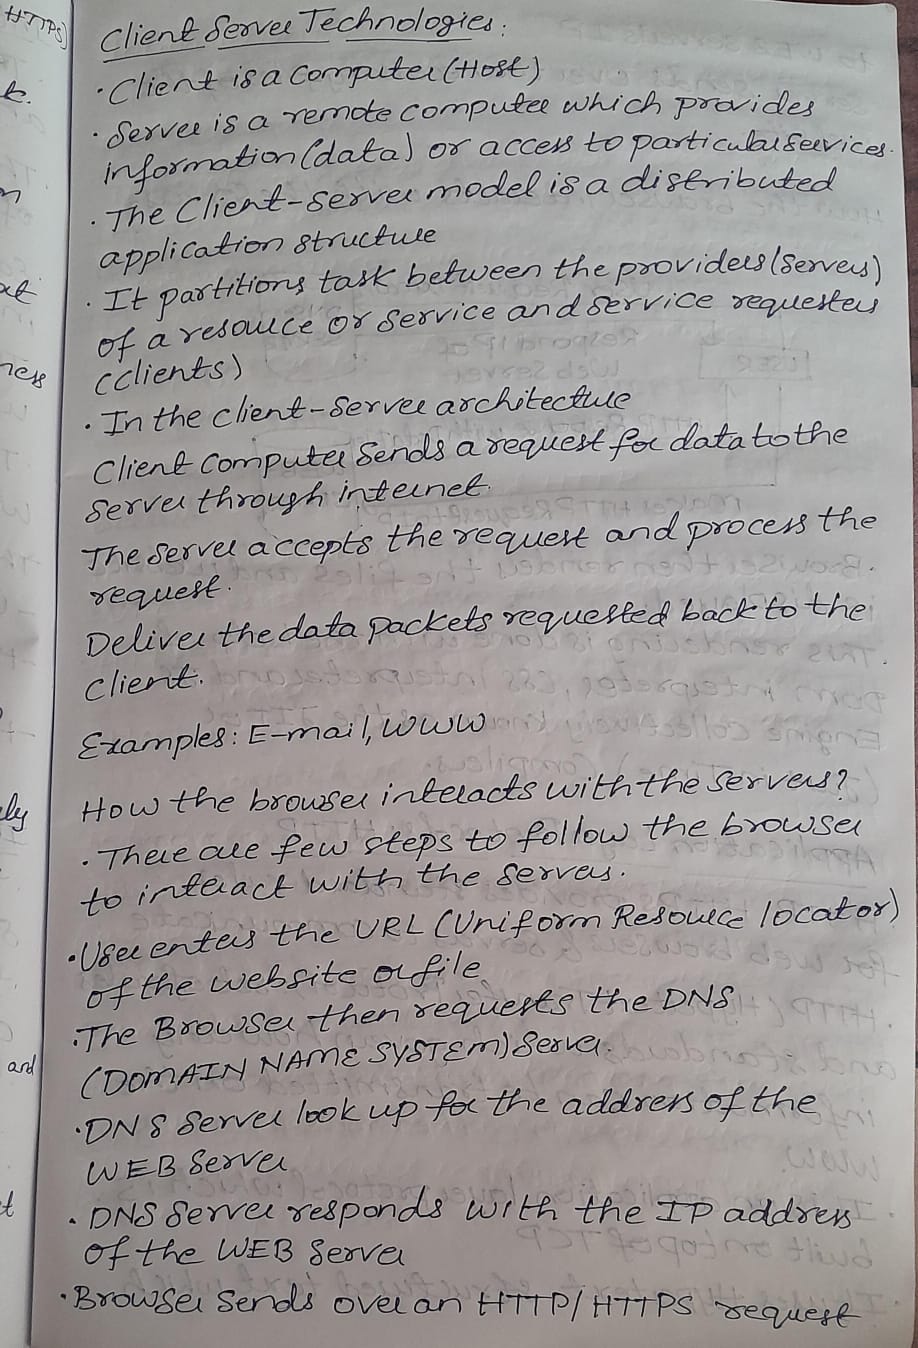 Client Server Technologies:
• Client is a Computer (Host)
• Server is a remote computer which provides
information (data) or access to particular services.
• The Client-server model is a distributed
application structure
• It partitions task between the providers (servers)
of a resource or service and service requesters
(clients)
• In the client-server architecture
Client Computer Sends a request for data to the
server through internet.
The server accepts the request and process the
request.
Deliver the data packets requested back to the
client.
Examples: E-mail, WWW
How the browser interacts with the servers?
• There are few steps to follow the browser
to interact with the servers.
• User enters the URL (Uniform Resource locator)
of the website or file
• The Browser then requests the DNS
(DOMAIN NAME SYSTEM) Server.
• DNS Server look up for the address of the
WEB Server
• DNS Server responds with the IP address
of the WEB Server
• Browser Sends over an HTTP/HTTPS request